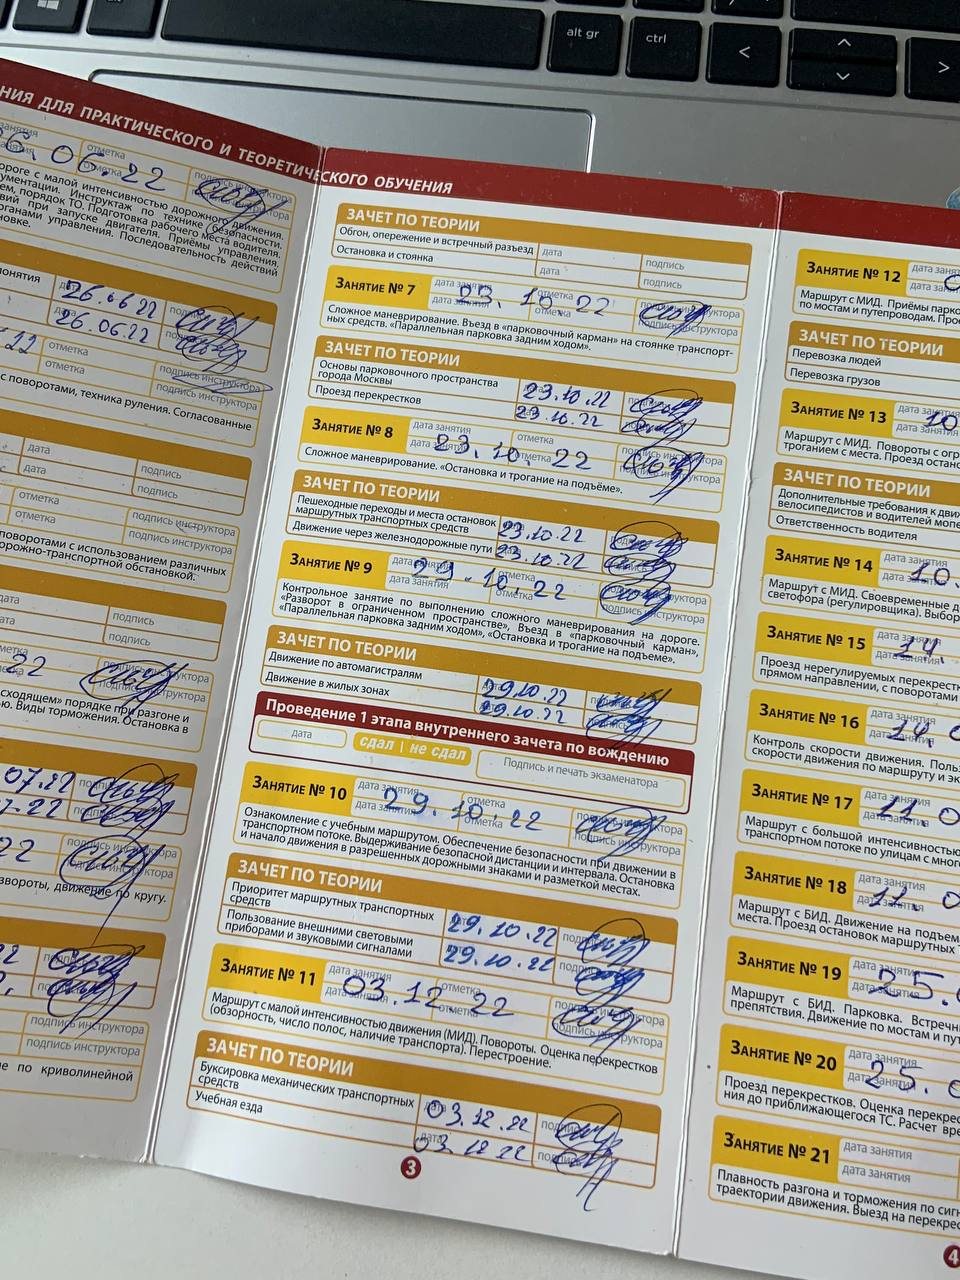 alt gr
ctrl
<
>
НИЯ ДЛЯ ПРАКТИЧЕСКОГО И ТЕОРЕТИЧЕСКОГО ОБУЧЕНИЯ
занятия
отметка
06.22
отметка
подпись инструктора
ороге с малой интенсивностью дорожного движения.
ументации. Инструктаж по технике безопасности.
ем, порядок ТО. Подготовка рабочего места водителя.
вий при запуске двигателя. Приёмы управления.
рганами управления. Последовательность действий
новке.
понятия
26.06.22
26.06.22
22
отметка
отметка
подпись инструктора
подпись инструктора
с поворотами, техника руления. Согласованные
дата
подпись
дата
подпись
отметка
подпись инструктора
отметка
подпись инструктора
поворотами с использованием различных
орожно-транспортной обстановкой.
дата
подпись
подпись
22
подпись инструктора
сходящем» порядке при разгоне и
ью. Виды торможения. Остановка в
07.22
22
подпись инструктора
звороты, движение по кругу.
подпись инструктора
подпись инструктора
ие по криволинейной
ЗАЧЕТ ПО ТЕОРИИ
Обгон, опережение и встречный разъезд
дата
подпись
Остановка и стоянка
дата
подпись
ЗАНЯТИЕ № 7
дата занятия
отметка
23.10.22
дата занятия
отметка
подпись инструктора
Сложное маневрирование. Въезд в «парковочный карман» на стоянке транспорт-
ных средств. «Параллельная парковка задним ходом».
ЗАЧЕТ ПО ТЕОРИИ
Основы парковочного пространства
города Москвы
23.10.22
Проезд перекрестков
23.10.22
ЗАНЯТИЕ № 8
дата занятия
отметка
дата занятия
23.10.22
отметка
подпись инструктора
Сложное маневрирование. «Остановка и трогание на подъёме».
ЗАЧЕТ ПО ТЕОРИИ
Пешеходные переходы и места остановок
маршрутных транспортных средств
23.10.22
Движение через железнодорожные пути
23.10.22
ЗАНЯТИЕ № 9
дата занятия
отметка
23.10.22
дата занятия
отметка
подпись инструктора
Контрольное занятие по выполнению сложного маневрирования на дороге.
«Разворот в ограниченном пространстве», Въезд в «парковочный карман»,
«Параллельная парковка задним ходом», «Остановка и трогание на подъеме».
ЗАЧЕТ ПО ТЕОРИИ
Движение по автомагистралям
29.10.22
Движение в жилых зонах
29.10.22
Проведение 1 этапа внутреннего зачета по вождению
дата
сдал | не сдал
Подпись и печать экзаменатора
ЗАНЯТИЕ № 10
дата занятия
отметка
29.10.22
дата занятия
отметка
подпись инструктора
Ознакомление с учебным маршрутом. Обеспечение безопасности при движении в
транспортном потоке. Выдерживание безопасной дистанции и интервала. Остановка
и начало движения в разрешенных дорожными знаками и разметкой местах.
ЗАЧЕТ ПО ТЕОРИИ
Приоритет маршрутных транспортных
средств
29.10.22
Пользование внешними световыми
приборами и звуковыми сигналами
29.10.22
ЗАНЯТИЕ № 11
дата занятия
отметка
03.12.22
дата занятия
отметка
подпись инструктора
Маршрут с малой интенсивностью движения (МИД). Повороты. Оценка перекрестков
(обзорность, число полос, наличие транспорта). Перестроение.
ЗАЧЕТ ПО ТЕОРИИ
Буксировка механических транспортных
средств
03.12.22
Учебная езда
03.12.22
3
ЗАНЯТИЕ № 12
дата занят
дата занят
Маршрут с МИД. Приёмы парко
по мостам и путепроводам. Прое
ЗАЧЕТ ПО ТЕОРИИ
Перевозка людей
Перевозка грузов
ЗАНЯТИЕ № 13
дата занятия
10
дата занятия
Маршрут с МИД. Повороты с огр
троганием с места. Проезд остано
ЗАЧЕТ ПО ТЕОРИИ
Дополнительные требования к движ
велосипедистов и водителей мопе
Ответственность водителя
ЗАНЯТИЕ № 14
дата занятия
10.
дата занятия
Маршрут с МИД. Своевременные д
светофора (регулировщика). Выбор
ЗАНЯТИЕ № 15
дата занятия
14.
дата занятия
Проезд нерегулируемых перекрестк
прямом направлении, с поворотами
ЗАНЯТИЕ № 16
дата занятия
14.0
дата занятия
Контроль скорости движения. Польз
скорости движения по маршруту и эк
ЗАНЯТИЕ № 17
дата занятия
11.0
дата занятия
Маршрут с большой интенсивностью
транспортном потоке по улицам с мног
ЗАНЯТИЕ № 18
дата занятия
11.0
дата занятия
Маршрут с БИД. Движение на подъем
места. Проезд остановок маршрутных Т
ЗАНЯТИЕ № 19
дата занятия
25.
дата занятия
Маршрут с БИД. Парковка. Встречн
препятствия. Движение по мостам и пут
ЗАНЯТИЕ № 20
дата занятия
25.0
дата занятия
Проезд перекрестков. Оценка перекрес
ния до приближающегося ТС. Расчет вре
ЗАНЯТИЕ № 21
дата занятия
дата занятия
Плавность разгона и торможения по сигн
траектории движения. Выезд на перекрес
4